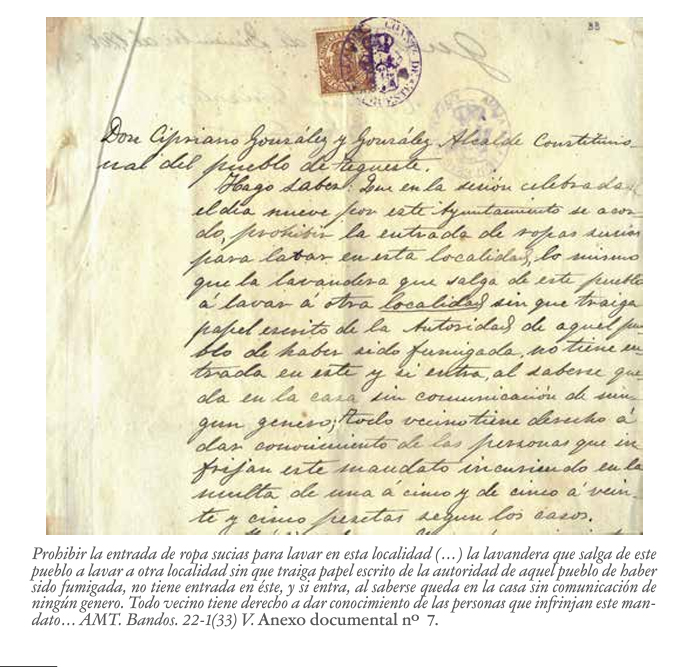 33
Don Cipriano González y González Alcalde Constitucio-
nal del pueblo de Tegueste.
Hago saber: Que en la sesión celebrada
el día nueve por este Ayuntamiento se acor-
dó, prohibir la entrada de ropas sucias
para lavar en esta localidad, lo mismo
que la lavandera que salga de este pueblo
á lavar á otra localidad sin que traiga
papel escrito de la Autoridad de aquel pue-
blo de haber sido fumigada, no tiene en-
trada en este y si entra, al saberse que-
da en la casa sin comunicación de nin-
gun genero; todo vecino tiene derecho á
dar conocimiento de las personas que in
frijan este mandato incuriendo en la
multa de una á cinco y de cinco á vein-
te y cinco pesetas segun los casos.
Prohibir la entrada de ropa sucias para lavar en esta localidad (…) la lavandera que salga de este
pueblo a lavar a otra localidad sin que traiga papel escrito de la autoridad de aquel pueblo de haber
sido fumigada, no tiene entrada en éste, y si entra, al saberse queda en la casa sin comunicación de
ningún genero. Todo vecino tiene derecho a dar conocimiento de las personas que infrinjan este man-
dato… AMT. Bandos. 22-1(33) V. Anexo documental nº 7.